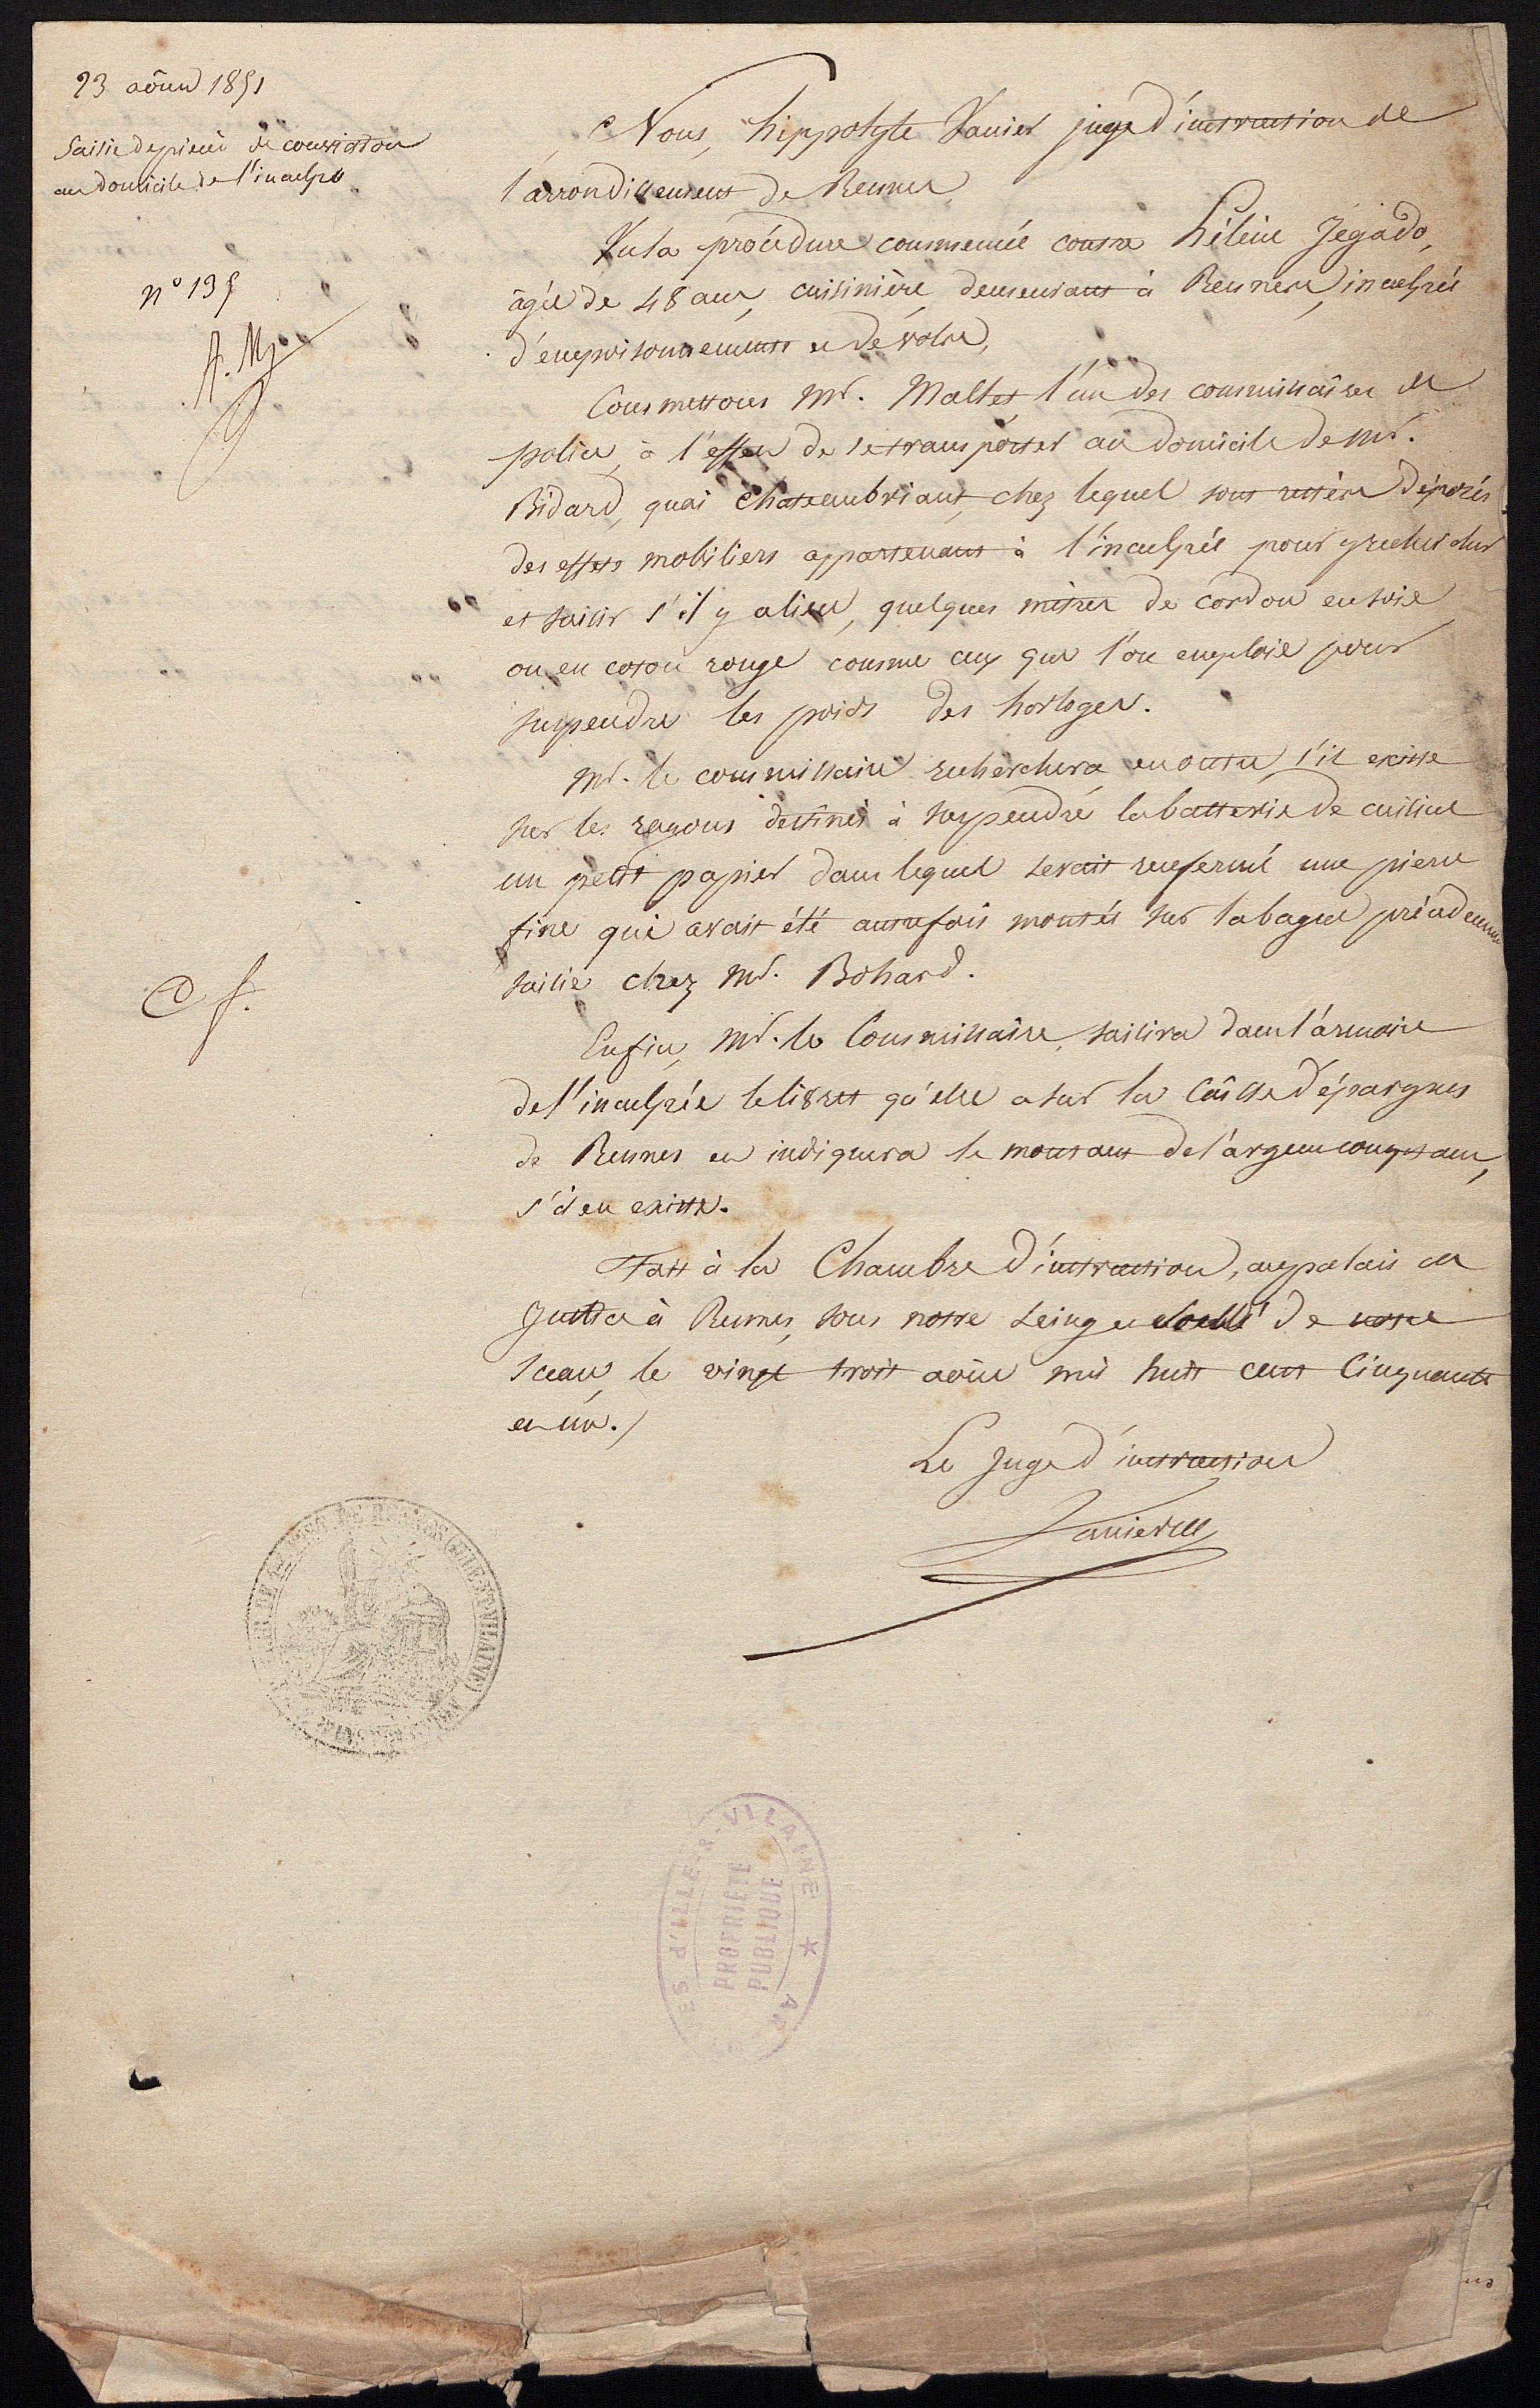 23 août 1851
Saisie de pièces de conviction
au domicile de l'inculpée
n° 135
Nous, hippolyte Vanier juge d'instruction de
l'arrondissement de Rennes,
Vu la procédure commencée contre hélène Jégado,
âgée de 48 ans, cuisinière, demeurant à Rennes, inculpée
d'empoisonnements et de vols,
Commettons Mr. Maltet l'un des commissaires de
police, à l'effet de se transporter au domicile de Mr.
Bidard, quai Chateaubriant, chez lequel sont restés déposés
des effets mobiliers appartenant à l'inculpée pour rechercher
et saisir s'il y a lieu, quelques mètres de cordon en soie
ou en coton rouge comme ceux que l'on emploie pour
suspendre les poids des horloges.
Mr. le commissaire recherchera en outre s'il existe
sur les rayons destinés à suspendre la batterie de cuisine
un petit papier dans lequel serait renfermé une pierre
fine qui avait été autrefois montée sur la bague précédemment
saisie chez Mr. Bohard.
Enfin, Mr. le Commissaire, saisira dans l'armoire
de l'inculpée le livret qu'elle a sur la Caisse d'épargnes
de Rennes et indiquera le montant de l'argent comptant,
s'il en existe.
Fait à la Chambre d'instruction, au palais de
Justice à Rennes, sous notre seing et scellé de notre
sceau, le vingt trois août mil huit cent cinquante
et un./
Le Juge d'instruction
Vanier
DE RENNES (ILLE-ET-VILAINE)
ES d'ILLE-&-VILAINE ★ AR
PROPRIÉTÉ
PUBLIQUE